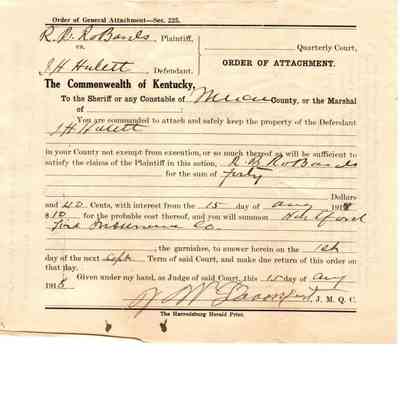 Order of General Attachment—Sec. 225.
R. D. RoBards, Plaintiff,
vs.
J H Hulett Defendant.
Quarterly Court,
ORDER OF ATTACHMENT.
The Commonwealth of Kentucky,
To the Sheriff or any Constable of Mercer County, or the Marshal
of :
You are commanded to attach and safely keep the property of the Defendant
J H Hulett
in your County not exempt from execution, or so much thereof as will be sufficient to
satisfy the claims of the Plaintiff in this action, RoBards
for the sum of forty
Dollars
and 40 Cents, with interest from the 15 day of aug 191
$10 for the probable cost thereof, and you will summon Hartford
Fire Insurance Co.
; the garnishee, to answer herein on the 1st
day of the next Sept Term of said Court, and make due return of this order on
that day.
Given under my hand, as Judge of said Court, this 15 day of aug
191
J. M. Q. C.
The Harrodsburg Herald Print.